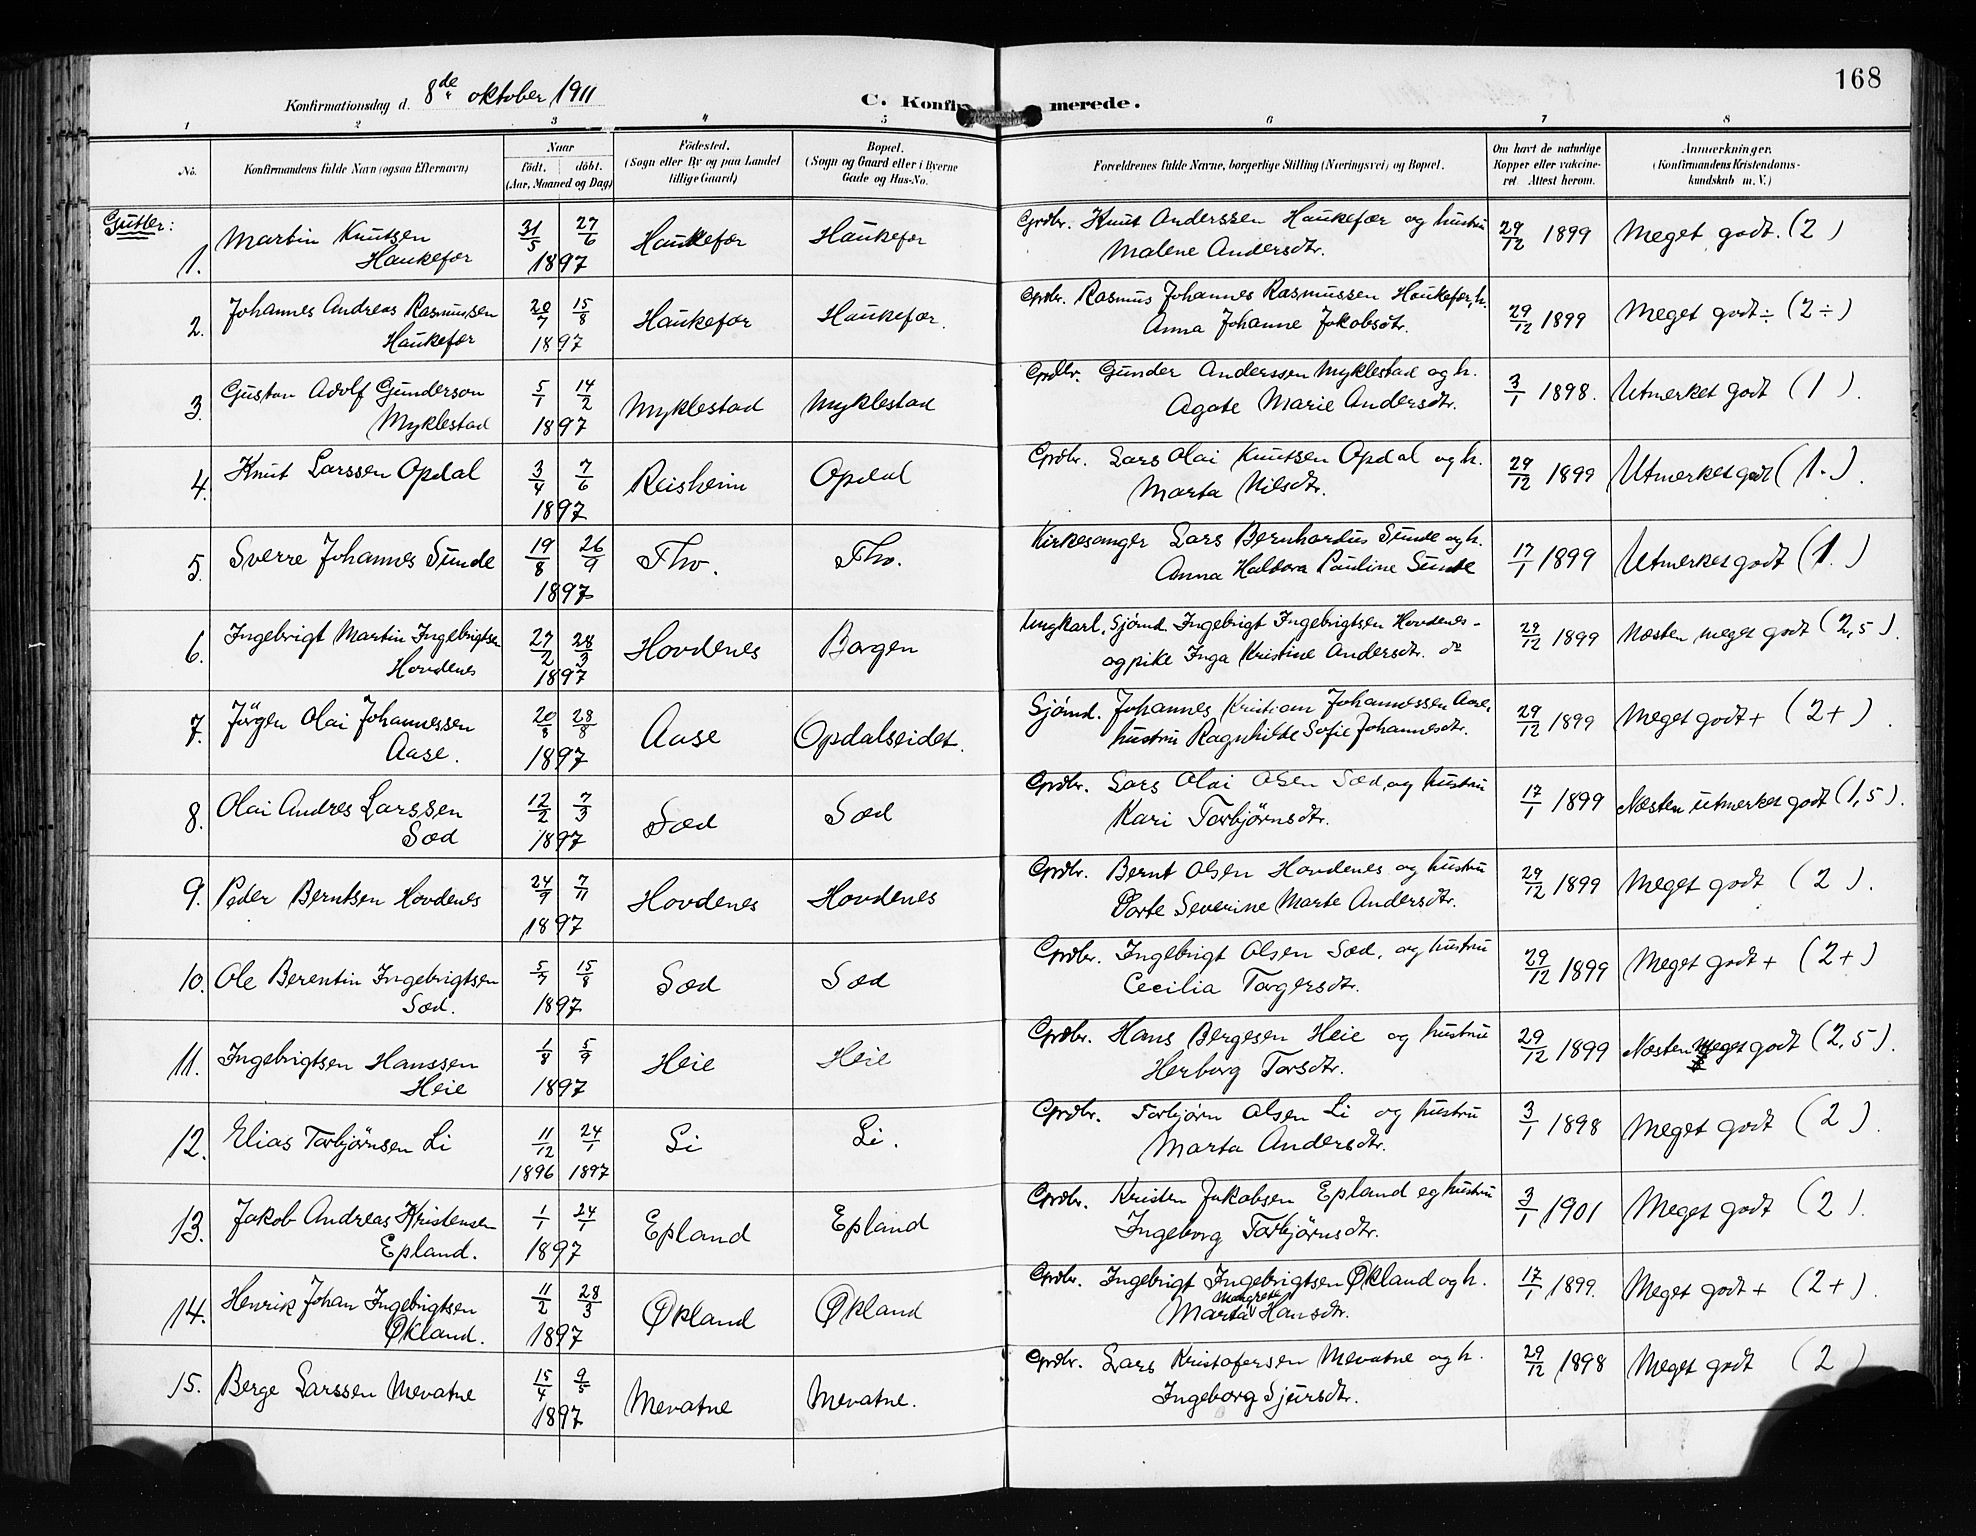 168
Konfirmationsdag d. 8de oktober 1911
C. Konfirmerede.
1 2 3 4 5 6 7 8
No. Konfirmandens fulde Navn (ogsaa Efternavn) Naar født. døbt. (Aar, Maaned og Dag) Fødested. (Sogn eller By og paa Landet tillige Gaard) Bopæl. (Sogn og Gaard eller i Byerne Gade og Hus-No. Forældrenes fulde Navne, borgerlige Stilling (Næringsvei) og Bopæl. Om havt de naturlige Kopper eller vakcineret Attest herom. Anmærkninger. (Konfirmandens Kristendomskundskab m. V.)
Gutter:
1. Martin Knutsen Haukefær 31/5 27/6 1897 Haukefær Haukefær Grdbr. Knut Anderssen Haukefær og hustru Malene Andersdtr. 29/12 1899 Meget godt. (2)
2. Johannes Andreas Rasmussen Haukefær 20/7 15/8 1897 Haukefær Haukefær. Grdbr. Rasmus Johannes Rasmussen Haukefær, h. Anna Johanne Jakobsdtr. 29/12 1899 Meget godt ÷ (2 ÷)
3. Gustav Adolf Gunderson Myklestad 5/1 14/2 1897 Myklestad Myklestad Grdbr. Gunder Anderssen Myklestad og h. Agate Marie Andersdtr. 3/1 1898. Utmerket godt (1).
4. Knut Larssen Opdal 3/4 7/6 1897 Reisheim Opdal Grdbr. Lars Olai Knutsen Opdal og h. Marta Nilsdtr. 29/12 1899 Utmerket godt (1.).
5. Sverre Johannes Sunde 19/8 26/9 1897 Tho. Tho. Kirkesanger Lars Bernhardus Sunde og h. Anna Haldora Pauline Sunde 17/1 1899 Utmerket godt (1.)
6. Ingebrigt Martin Ingebrigtsen Hovdenes 27/2 28/3 1897 Hovdenes Borgen Ungkarl, Sjømd. Ingebrigt Ingebrigtsen Hovdenes - og pike Inga Kristine Andersdtr. do 29/12 1899 Næsten meget godt (2,5).
7. Jörgen Olai Johannessen Aase. 20/8 28/8 1897 Aase Opdalseidet. Sjømd. Johannes Kristian Johannessen Aase, hustru Ragnhilde Sofie Johannesdtr. 29/12 1899 Meget godt + (2+).
8. Olai Andres Larssen Sæd 12/2 7/3 1897 Sæd Sæd Grdbr. Lars Olai Olsen Sæd, og hustru Kari Torbjørnsdtr. 17/1 1899 Næsten utmerket godt (1,5).
9. Peder Berntsen Hovdenes 24/9 7/11 1897 Hovdenes Hovdenes Grdbr. Bernt Olsen Hovdenes og hustru Dorte Severine Marte Andersdtr. 29/12 1899 Meget godt (2).
10. Ole Berentin Ingebrigtsen Sæd. 5/7 15/8 1897 Sæd Sæd Grdbr. Ingebrigt Olsen Sæd. og hustru Cecilia Torgersdtr. 29/12 1899 Meget godt + (2+)
11. Ingebrigtsen Hanssen Heie 1/8 5/9 1897 Heie Heie Grdbr. Hans Bergesen Heie og hustru Herborg Torsdtr. 29/12 1899 Næsten meget godt (2,5).
12. Elias Torbjørnsen Li 11/12 24/1 1896 1897 Li Li. Grdbr. Torbjørn Olsen Li og hustru Marta Andersdtr. 3/1 1898 Meget godt (2).
13. Jakob Andreas Kristensen Epland. 1/1 24/1 1897 Epland Epland Grdbr. Kristen Jakobsen Epland og hustru Ingeborg Torbjørnsdtr. 3/1 1901 Meget godt (2).
14. Henrik Johan Ingebrigtsen Økland. 11/2 28/3 1897 Økland Økland Grdbr. Ingebrigt Ingebrigtsen Økland og h. Marta Margrete Hansdtr. 17/1 1899. Meget godt + (2+).
15. Berge Larssen Mevatne 15/4 9/5 1897 Mevatne Mevatne. Grdbr. Lars Kristofersen Mevatne og h. Ingeborg Sjursdtr. 29/12 1898 Meget godt (2)